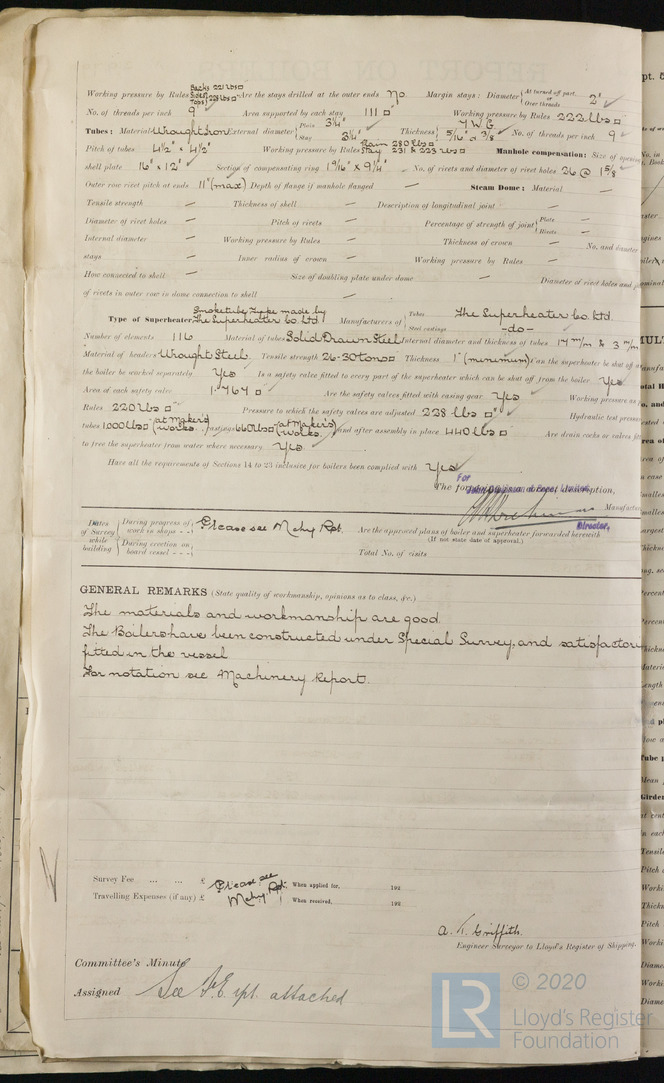 Backs 221 lbs□
Working pressure by Rules Sides Tops 228 lbs□ Are the stays drilled at the outer ends No Margin stays: Diameter { At turned off part, or Over threads 2"
No. of threads per inch 9 Area supported by each stay 111 □" Working pressure by Rules 222 lbs □
Tubes: Material Wrought Iron External diameter { Plain 3¼" Stay 3¼" Thickness { 7 WG 5/16" & 3/8" No. of threads per inch 9
Pitch of tubes 4½" × 4½" Working pressure by Rules Plain 280 lbs□ Stay 231 & 223 lbs□ Manhole compensation: Size of opening
shell plate 16" × 12" Section of compensating ring 1 9/16" × 9¼" No. of rivets and diameter of rivet holes 26 @ 1 5/8"
Outer row rivet pitch at ends 11" (max) Depth of flange if manhole flanged — Steam Dome: Material —
Tensile strength — Thickness of shell — Description of longitudinal joint —
Diameter of rivet holes — Pitch of rivets — Percentage of strength of joint { Plate — Rivets —
Internal diameter — Working pressure by Rules — Thickness of crown — No. and diameter
stays — Inner radius of crown — Working pressure by Rules —
How connected to shell — Size of doubling plate under dome — Diameter of rivet holes and
of rivets in outer row in dome connection to shell —
Type of Superheater Smoketube Type made by The Superheater Co. Ltd. Manufacturers of { Tubes The Superheater Co. Ltd. Steel castings -do-
Number of elements 116 Material of tubes Solid Drawn Steel Internal diameter and thickness of tubes 17 m/m & 3 m/m
Material of headers Wrought Steel Tensile strength 26-30 tons□" Thickness 1" (minimum) Can the superheater be shut off
the boiler be worked separately Yes Is a safety valve fitted to every part of the superheater which can be shut off from the boiler Yes
Area of each safety valve 1.764 □" Are the safety valves fitted with easing gear Yes Working pressure as
Rules 220 lbs □" Pressure to which the safety valves are adjusted 228 lbs □" Hydraulic test pressure
tubes 1000 lbs□" (at Maker's works) castings 660 lbs□" (at Maker's works) and after assembly in place 440 lbs□" Are drain cocks or valves
to free the superheater from water where necessary Yes.
Have all the requirements of Sections 14 to 23 inclusive for boilers been complied with Yes
For
The foregoing is a correct description,
Manufacturer
Director.
Dates of Survey while building { During progress of work in shops - - During erection on board vessel - - - } Please see Mchy Rpt. Are the approved plans of boiler and superheater forwarded herewith
(If not state date of approval.)
Total No. of visits
GENERAL REMARKS (State quality of workmanship, opinions as to class, &c.)
The materials and workmanship are good.
The Boilers have been constructed under Special Survey, and satisfactory
fitted in the vessel
For notation see Machinery Report.
Survey Fee ... ... £ Please see When applied for, 192
Travelling Expenses (if any) £ Mchy Rpt. When received, 192
A. T. Griffith.
Engineer Surveyor to Lloyd's Register of Shipping.
Committee's Minute
Assigned See F.E. rpt. attached
LR
© 2020
Lloyd's Register
Foundation